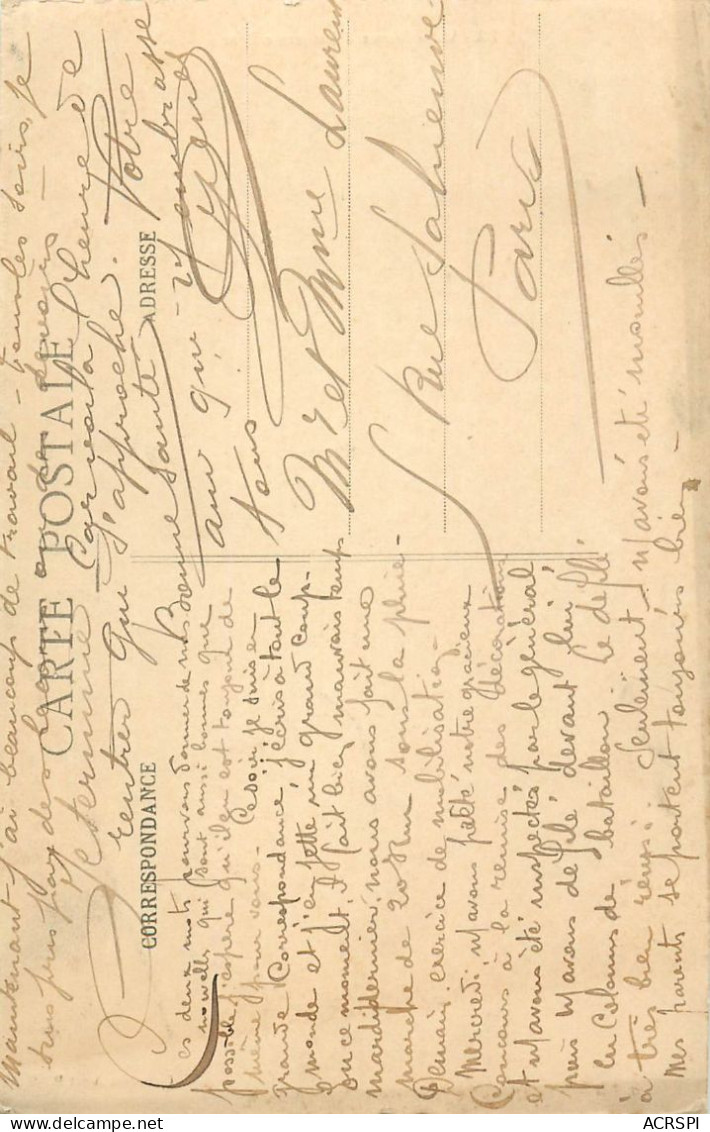 CARTE POSTALE
CORRESPONDANCE
ADRESSE
ces deux mots pour vous donner de nos
nouvelles qui sont aussi bonnes que
possible j'espère qu'il en est toujours de
même pour vous. Ce soir je suis en
grande correspondance j'écris à tout le
monde et j'en jette un grand coup
en ce moment. Il fait bien mauvais temps
mardi dernier nous avons fait une
marche de 20 Km sous la pluie
Demain exercice de mobilisation
Mercredi n/avons prêté notre gracieux
Concours à la remise des décorations
et n/avons été inspectés par le général
puis n/avons défilé devant lui
en Colonne de bataillon Le défilé
à très bien réussi Seulement n/avons été mouillés
Mes parents se portent toujours bien
Maintenant j'ai beaucoup de travail tous les soirs, je
suis
termine Car voilà l'heure de
rentrer qui s'approche. Votre
Bonne Santé
ami qui embrasse
tous
Mr et Mme Laurent
Rue
Paris
ACRSPI